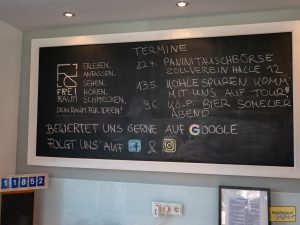 TERMINE
ERLEBEN,
ANFASSEN,
SEHEN,
HÖREN,
SCHMECKEN,
FREI
RAUM
DEIN RAUM FÜR IDEEN!
22.4. PANINITAUSCHBÖRSE
ZOLLVEREIN HALLE 12
13.5. KOHLESPUREN KOMM'
MIT UNS AUF TOUR
9.6. BIER SOMELIER
ABEND
BEWERTET UNS GERNE AUF GOOGLE
FOLGT UNS AUF f &
11852